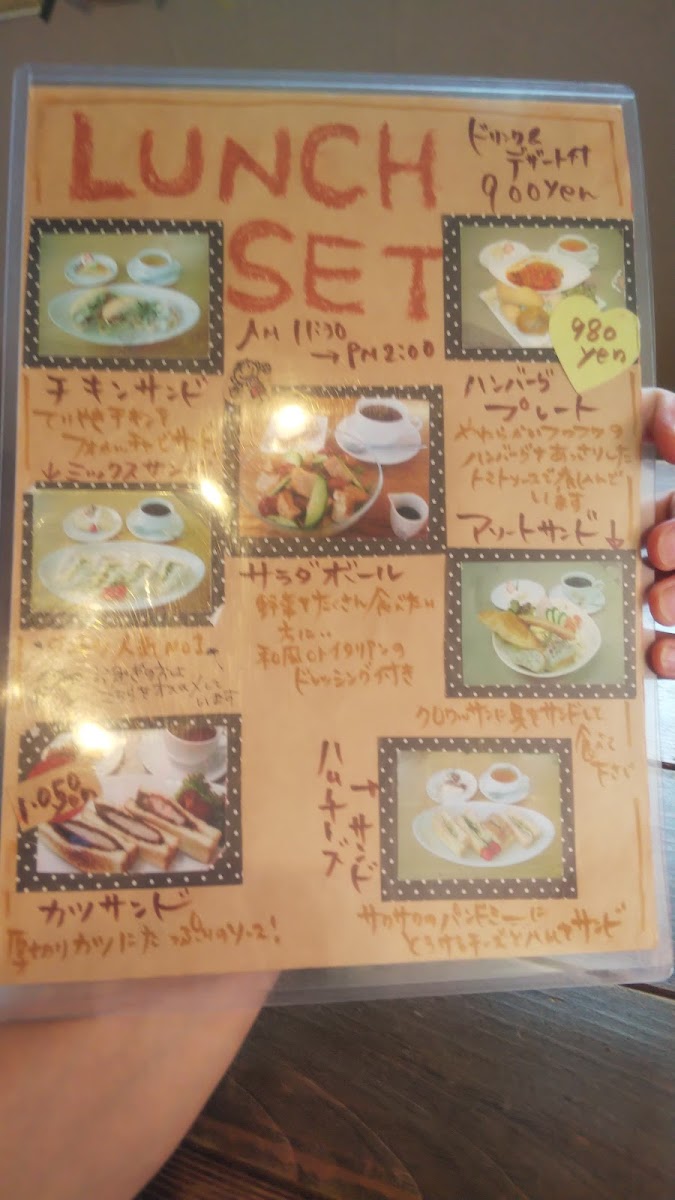 LUNCH
SET
ドリンク&
デザート付
900yen
AM 11:30
→PM 2:00
980
yen
チキンサンド
チキンを
ハンバーグ
プレート
やわらかいフワフワの
ハンバーグをあっさりした
トマトソースで煮込んで
います
↓ミックスサンド
サラダボール
野菜をたくさん食べたい
方に!!
和風orイタリアンの
ドレッシング付き
アソートサンド↓
人気No1
オススメして
います
クロワッサンに具をサンドして
食べて
下さい
1,050yen
カツサンド
厚切りカツにたっぷりのソース!
ハムチーズ
→サンド
サクサクのパンドミーに
とろけるチーズとハムをサンド